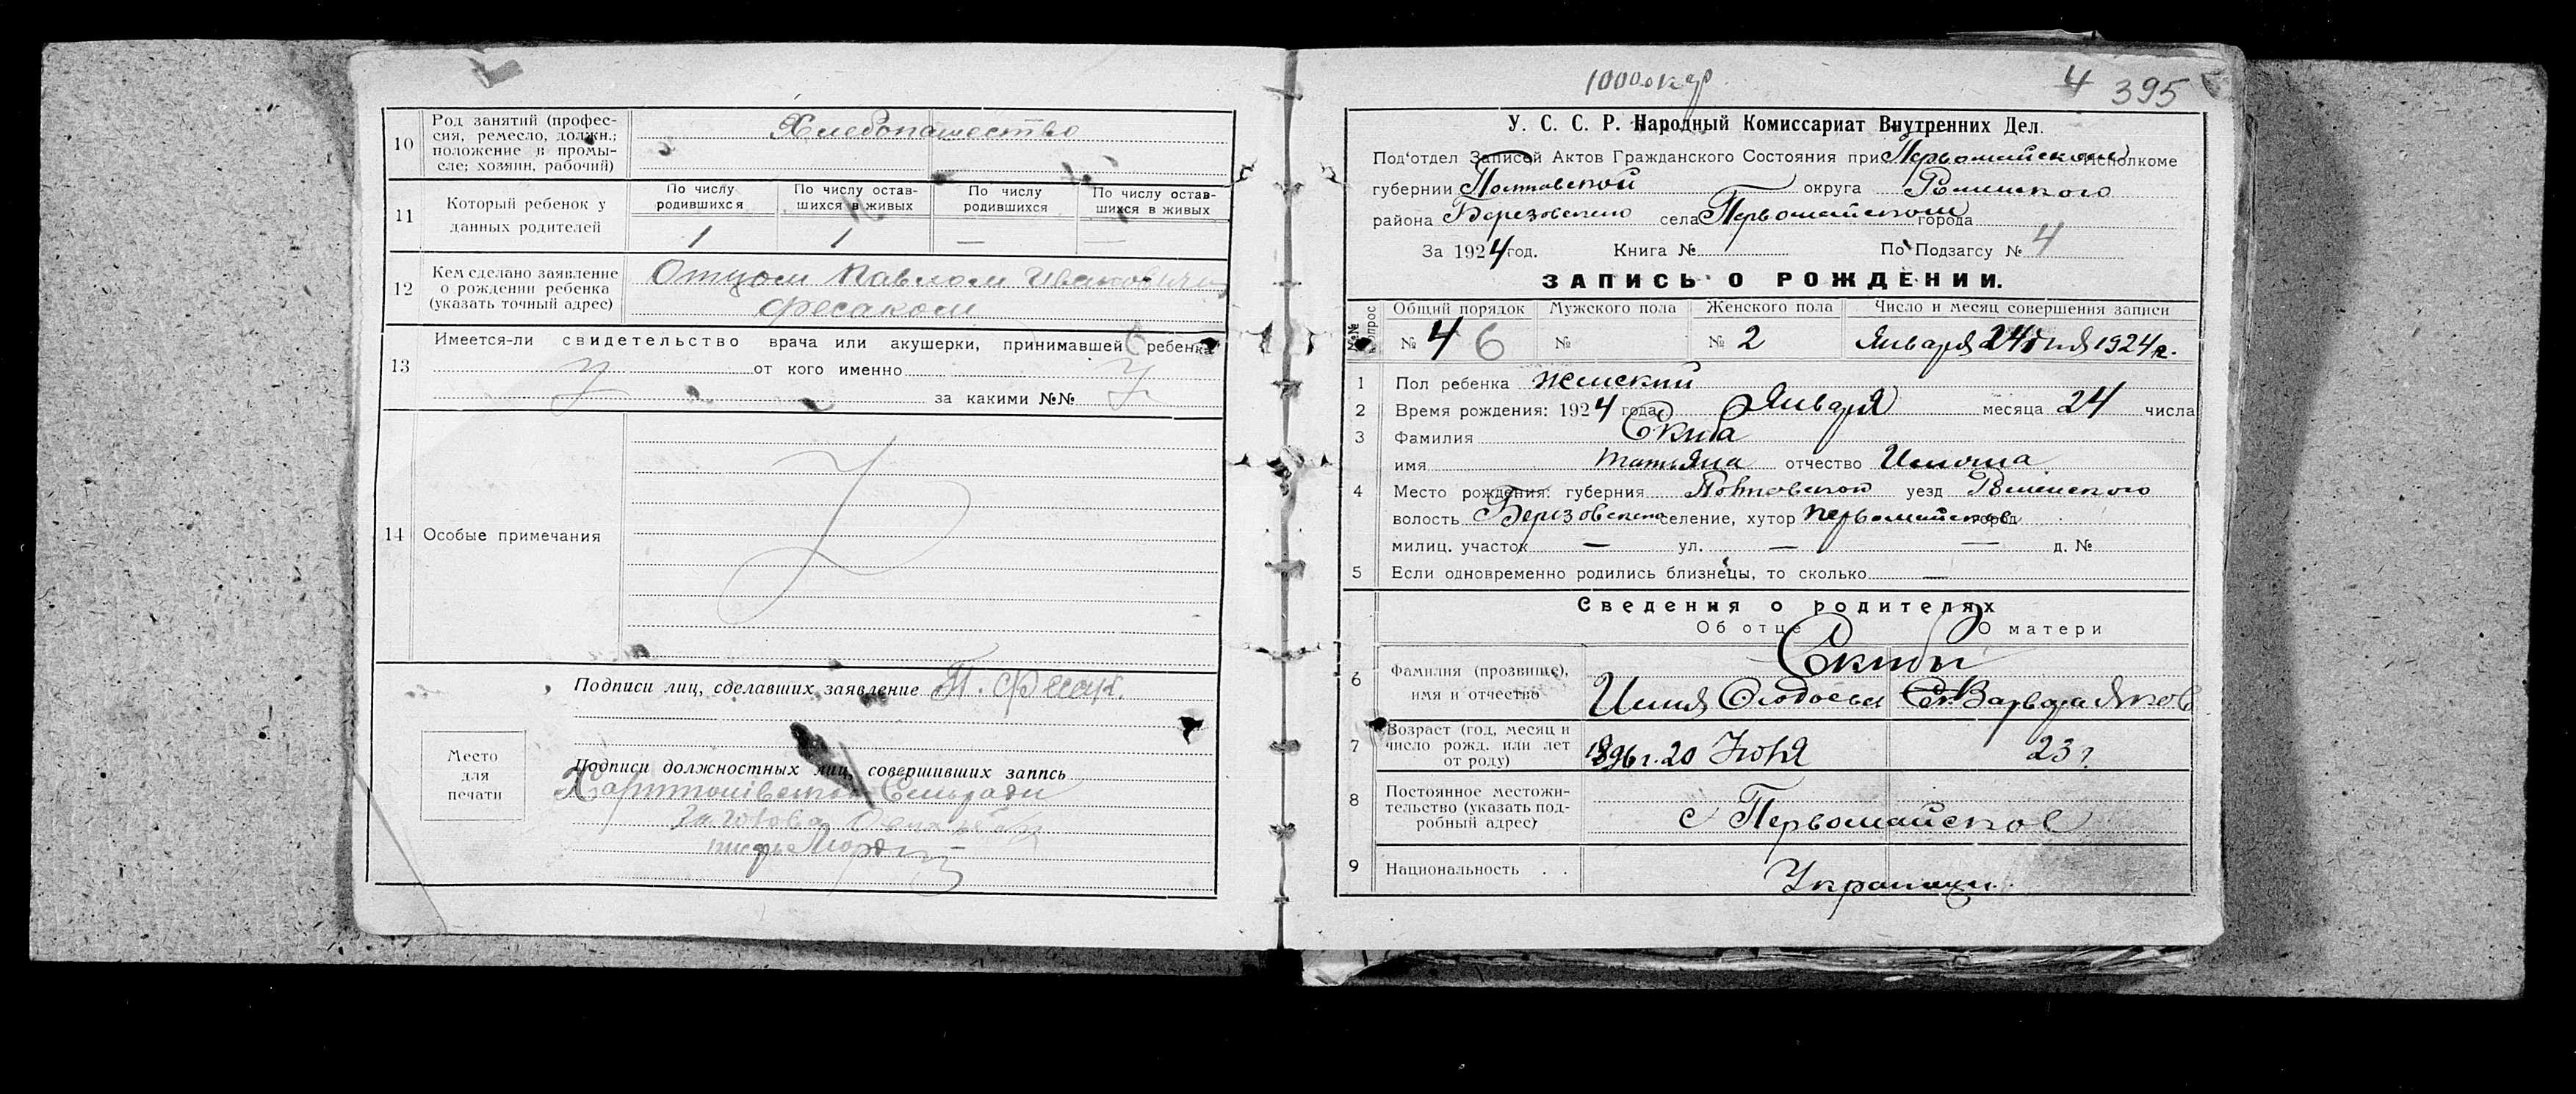 10 Род занятий (профес-
сия, ремесло, должн.;
положение в промы-
сле; хозяин, рабочий)
Хлебопашество
11 Который ребенок у
данных родителей
По числу
родившихся
По числу остав-
шихся в живых
По числу
родившихся
По числу остав-
шихся в живых
1 1 — —
12 Кем сделано заявление
о рождении ребенка
(указать точный адрес)
Отцом Павлом Ивановичем
Фесаком
13 Имеется-ли свидетельство врача или акушерки, принимавшей ребенка
от кого именно
за какими №№
14 Особые примечания
Подписи лиц, сделавших заявление П. Фесак.
Место
для
печати
Подписи должностных лиц, совершивших запись
Сельради
1000 окр
4 395
У. С. С. Р. Народный Комиссариат Внутренних Дел.
Под'отдел Записей Актов Гражданского Состояния при Первомайском Исполкоме
губернии Полтавской округа Роменского
района Березовского села Первомайском города
За 1924 год. Книга № По Подзагсу № 4
ЗАПИСЬ О РОЖДЕНИИ.
№№ вопрос
Общий порядок Мужского пола Женского пола Число и месяц совершения записи
№ 4 6 № № 2 Января 24 дня 1924 г.
1 Пол ребенка женский
2 Время рождения: 1924 года Января месяца 24 числа
3 Фамилия Скиба
имя Татьяна отчество
4 Место рождения: губерния Полтавской уезд Роменского
волость Березовского селение, хутор Первомайское город
милиц. участок — ул. — — д. №
5 Если одновременно родились близнецы, то сколько —
Сведения о родителях
Об отце О матери
6 Фамилия (прозвище),
имя и отчество
Скибы
Варвара Яков
7 Возраст (год, месяц и
число рожд. или лет
от роду)
1896 г. 20 Юня 23 г.
8 Постоянное местожи-
тельство (указать под-
робный адрес)
с Первомайское
9 Национальность . .
Украинцы.